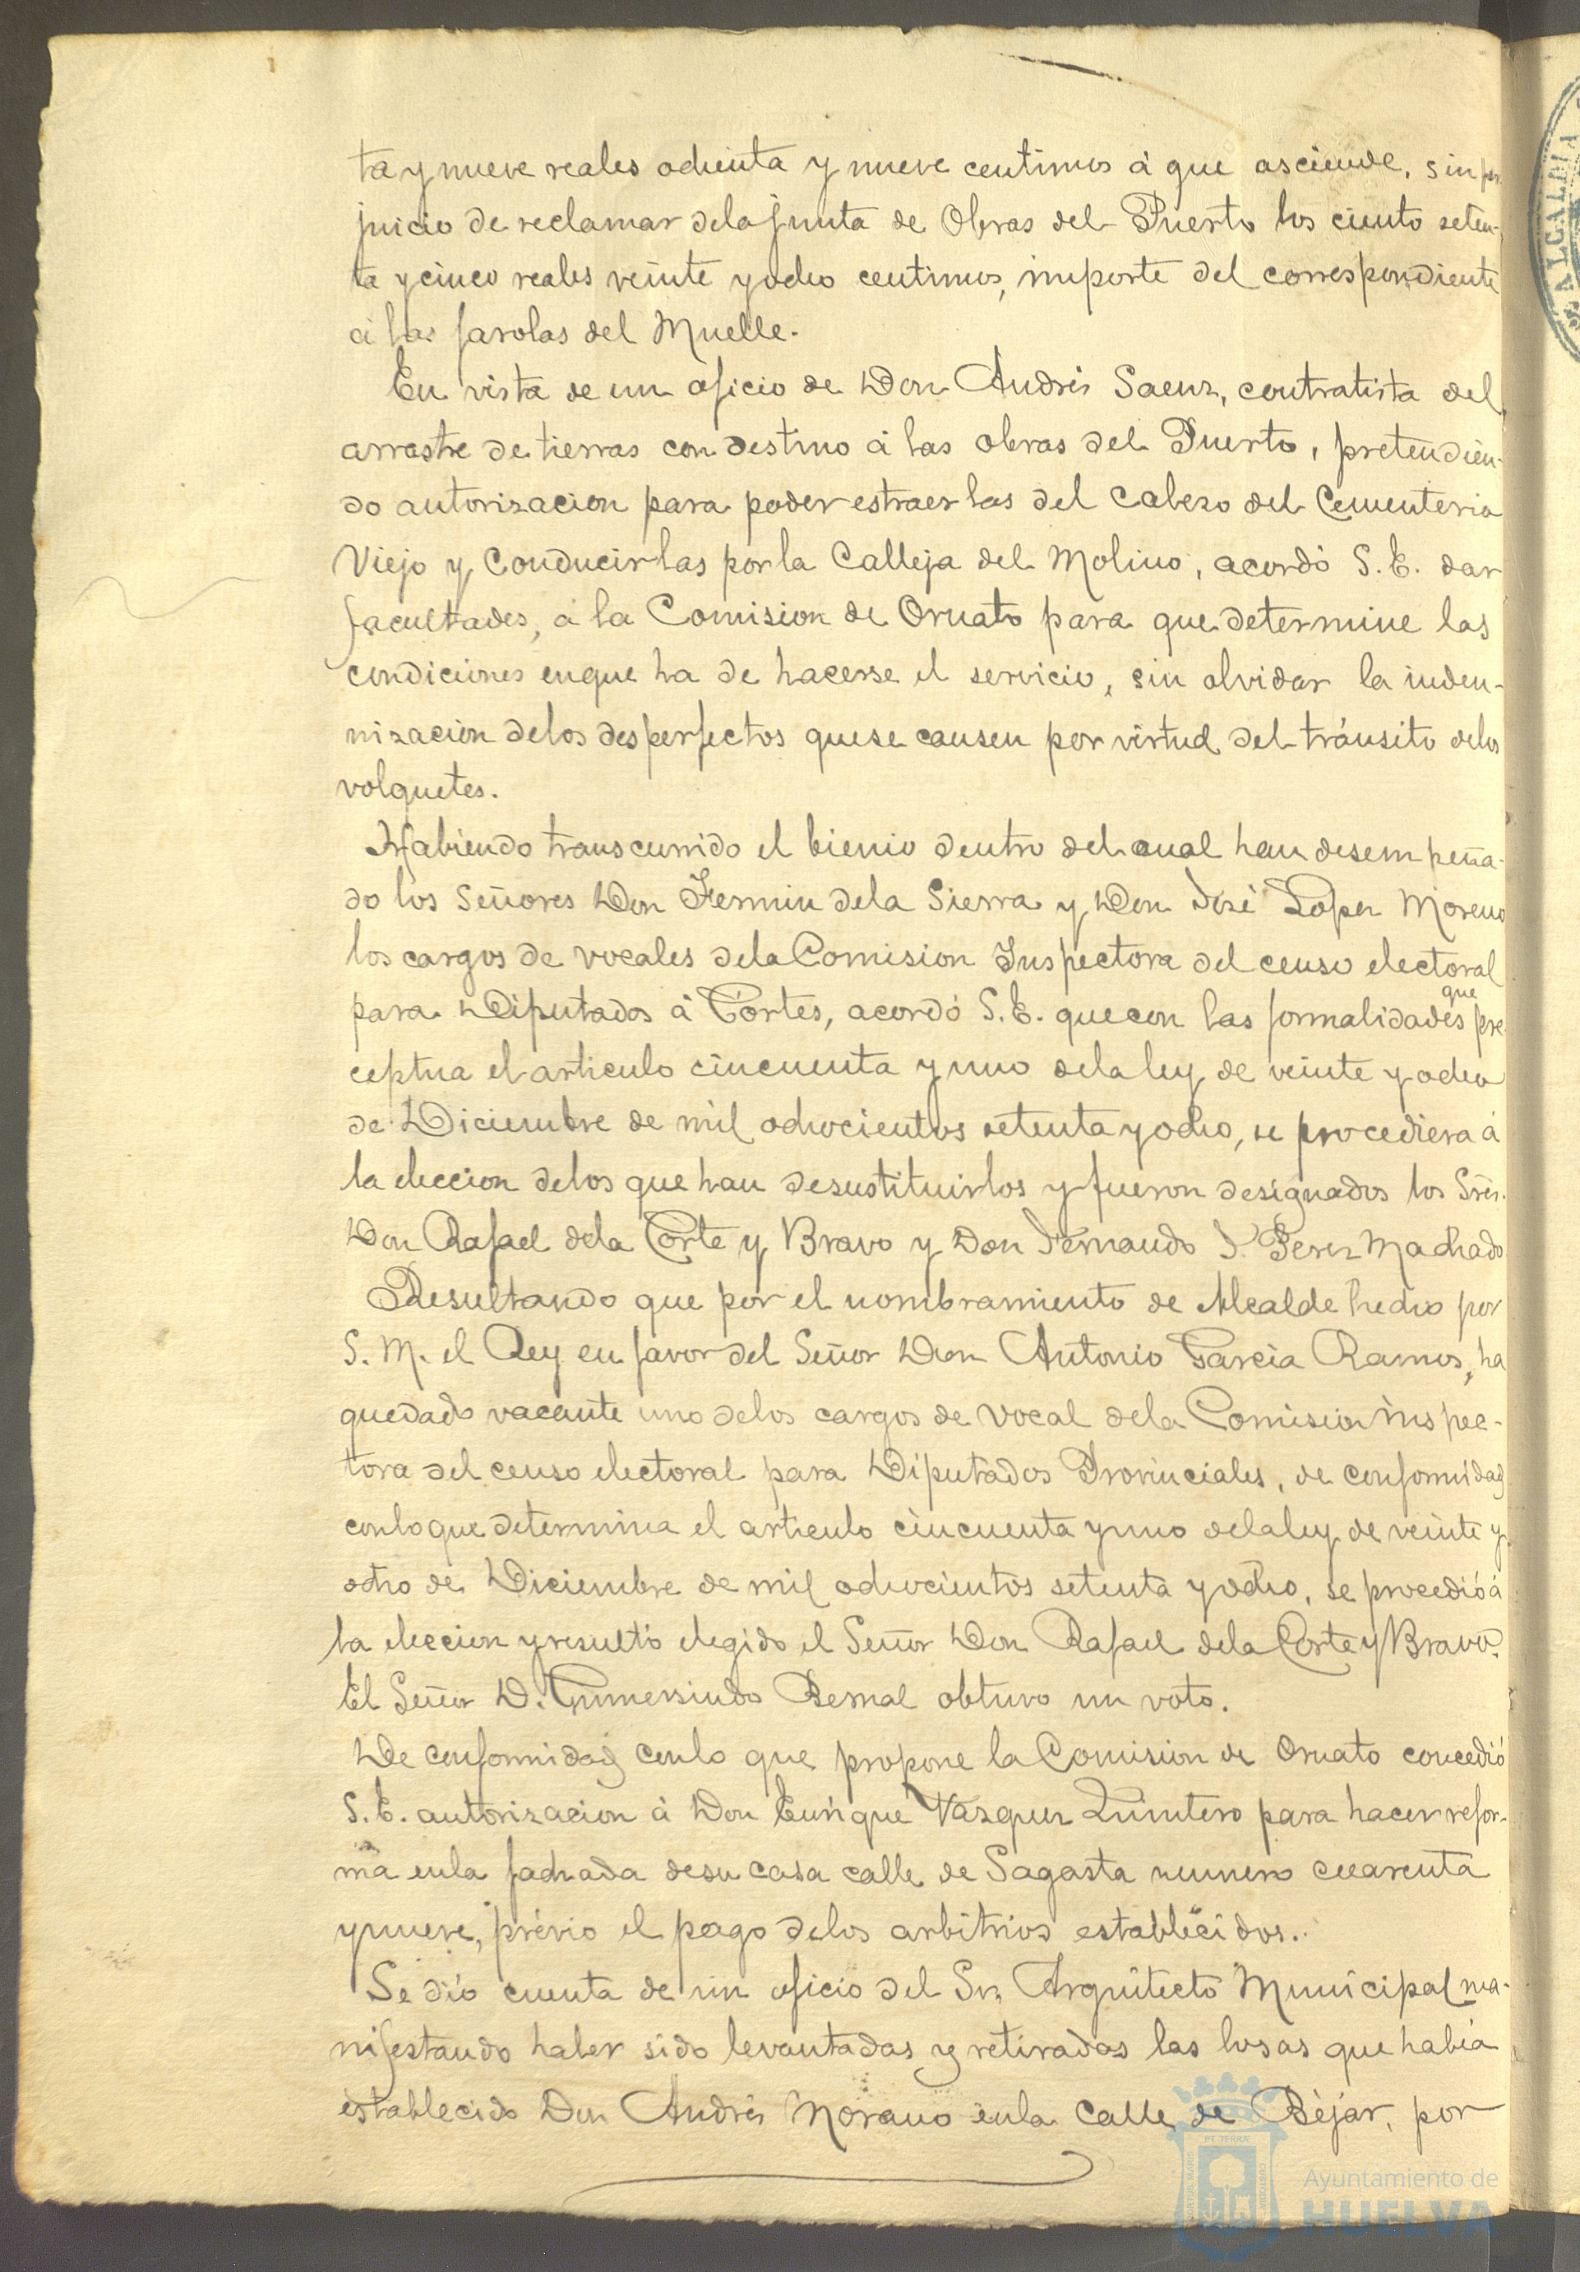 ta y nueve reales ochenta y nueve centimos á que asciende, sin per
juicio de reclamar dela Junta de Obras del Puerto los ciento seten-
ta y cinco reales veinte y ocho centimos, importe del correspondiente
á las farolas del Muelle.
En vista de un oficio de Don Andrés Saenz, contratista del
arrastre de tierras con destino á las obras del Puerto, pretendien-
do autorizacion para poder estraerlas del Cabezo del Cementerio
Viejo y Conducirlas por la Calleja del Molino, acordó S. E. dar
facultades, á la Comision de Ornato para que determine las
condiciones enque ha de hacerse el servicio, sin olvidar la indem-
nizacion delos desperfectos quese causen por virtud del tránsito delos
volquetes.
Habiendo transcurrido el bienio dentro del cual han desempeña-
do los Señores Don Fermin dela Sierra y Don José Lopez Moreno
los cargos de vocales dela Comision Inspectora del censo electoral
para Diputados á Córtes, acordó S. E. que con las formalidades que pre
ceptua el articulo cincuenta y uno dela ley de veinte y ocho
de Diciembre de mil ochocientos setenta y ocho, se procediera á
la eleccion delos que han desustituirlos y fueron designados los Sres.
Don Rafael dela Corte y Bravo y Don Fernando Perez Machado
Resultando que por el nombramiento de Alcalde hecho por
S. M. el Rey en favor del Señor Don Antonio Garcia Ramos, ha
quedado vacante uno delos cargos de Vocal dela Comision inspec-
tora del censo electoral para Diputados Provinciales, de conformidad
conloque determina el articulo cincuenta y uno dela ley de veinte y
ocho de Diciembre de mil ochocientos setenta y ocho, se procedió á
la eleccion y resultó elegido el Señor Don Rafael dela Corte y Bravo.
El Señor D. Gumersindo Bernal obtuvo un voto.
De conformidad conlo que propone la Comision de Ornato concedió
S. E. autorizacion á Don Enrique Vazquez Quintero para hacer refor-
ma enla fachada desu casa calle de Sagasta numero cuarenta
y nueve, prévio el pago delos arbitrios establecidos.
Se dió cuenta de un oficio del Sr. Arquitecto Municipal ma-
nifestando haber sido levantadas y retiradas las losas que habia
establecido Don Andrés Morano enla Calle de Béjar, por
ALCALDIA
Ayuntamiento de
HUELVA